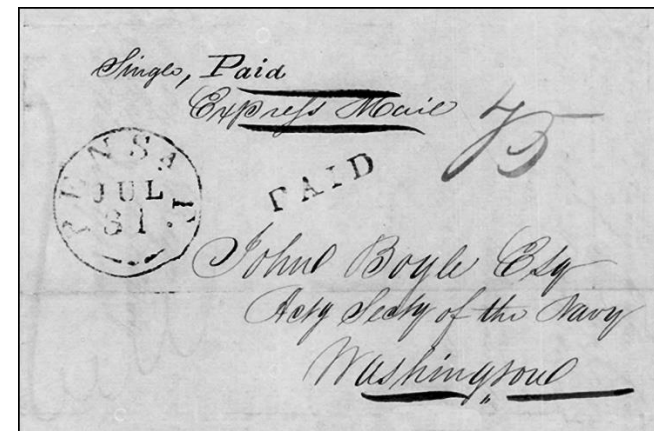 Single, Paid
Express Mail
75
PENSA. F.
JUL
31
PAID
John Boyle Esq
Actg Secty of the Navy
Washington